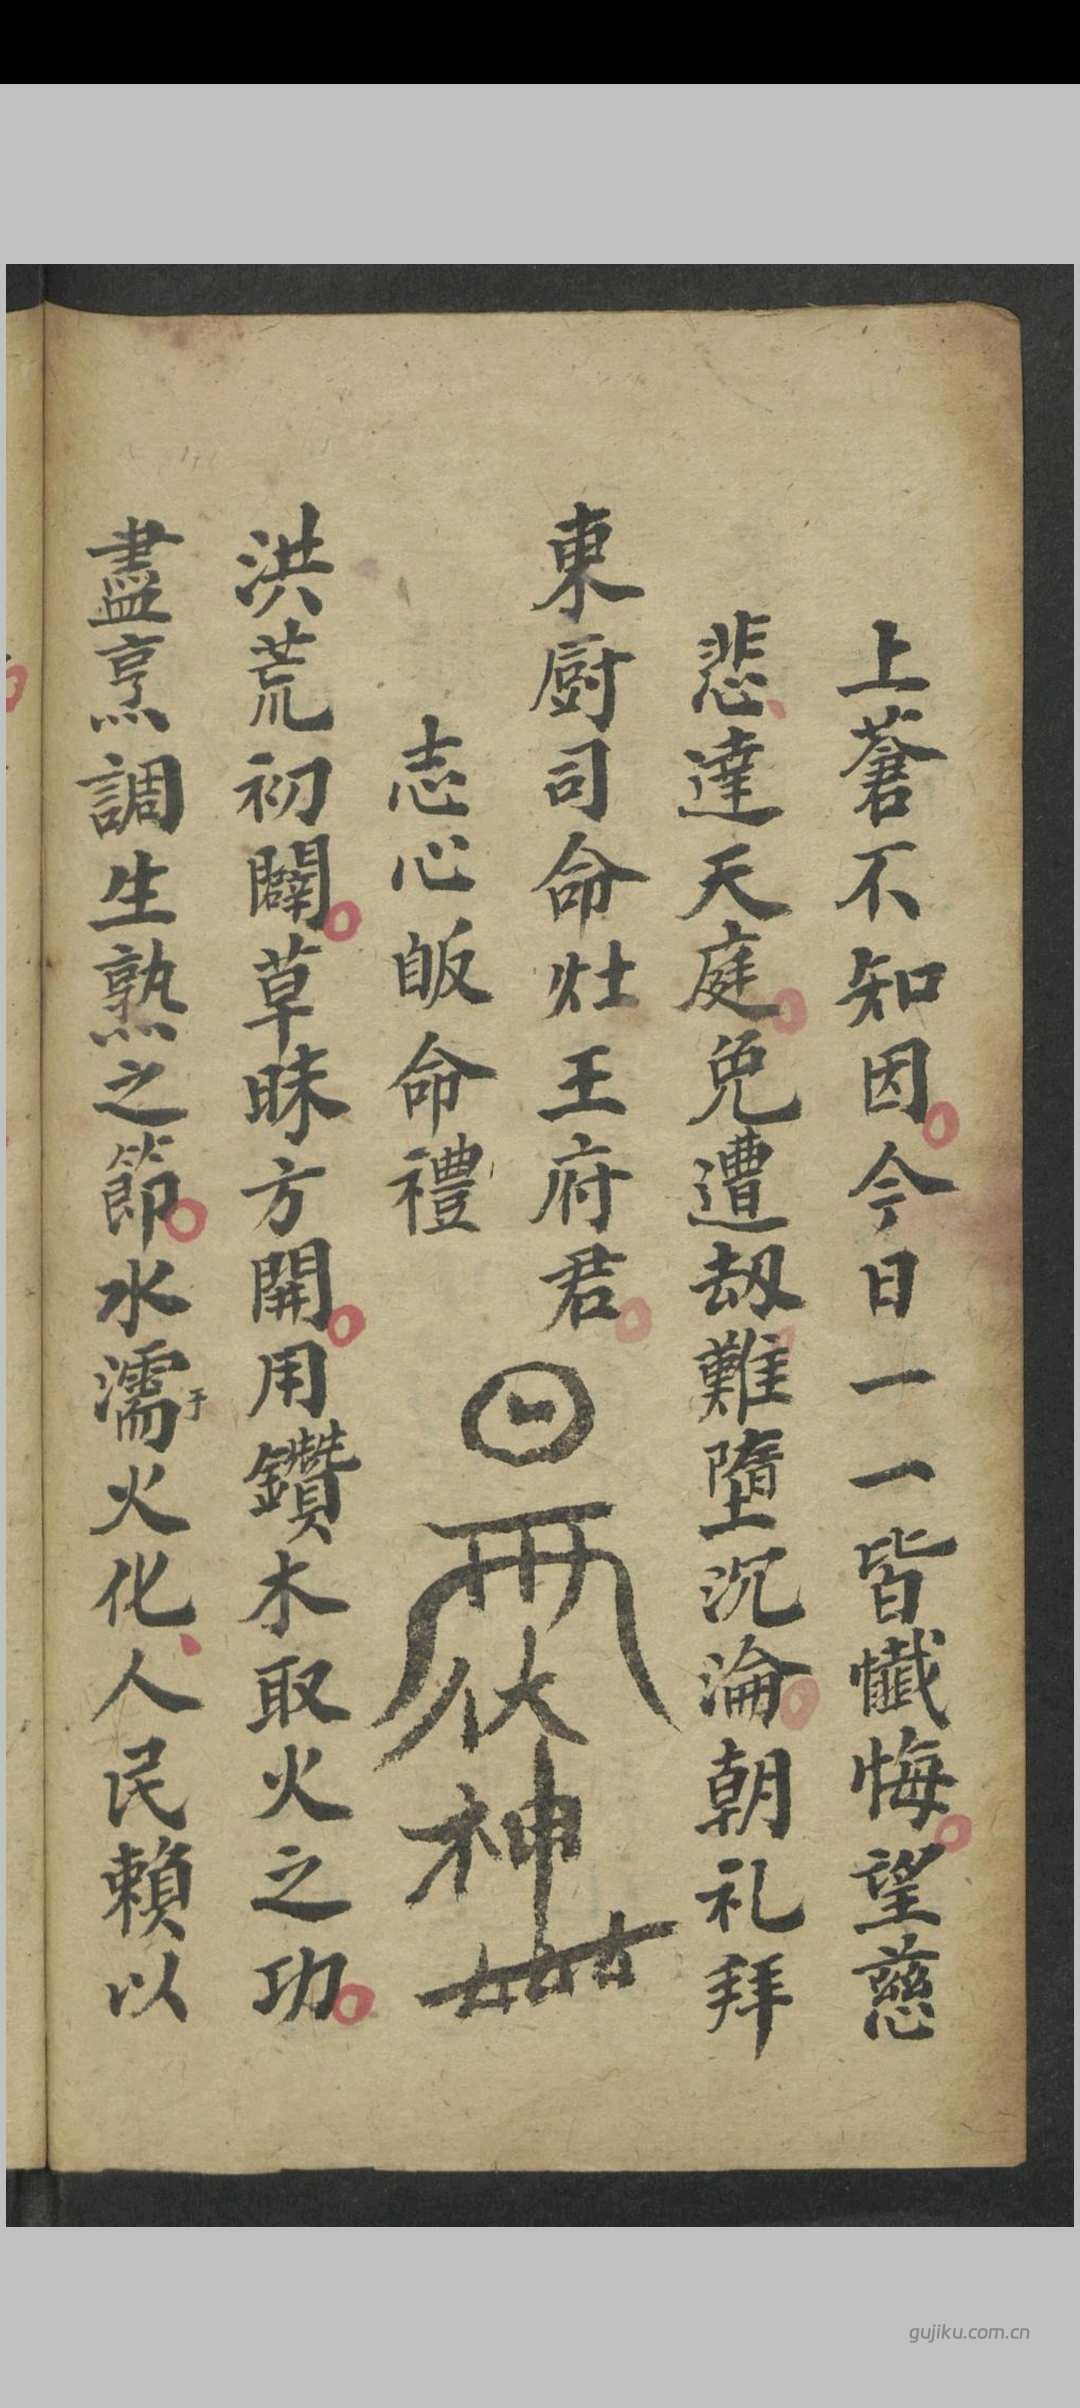 上蒼不知因今日一一皆懺悔望慈
悲達天庭免遭劫難墮沉淪朝礼拜
東厨司命灶王府君
志心皈命禮
洪荒初闢草昧方開用鑽木取火之功
盡烹調生熟之節水濡于火化人民賴以
gujiku.com.cn